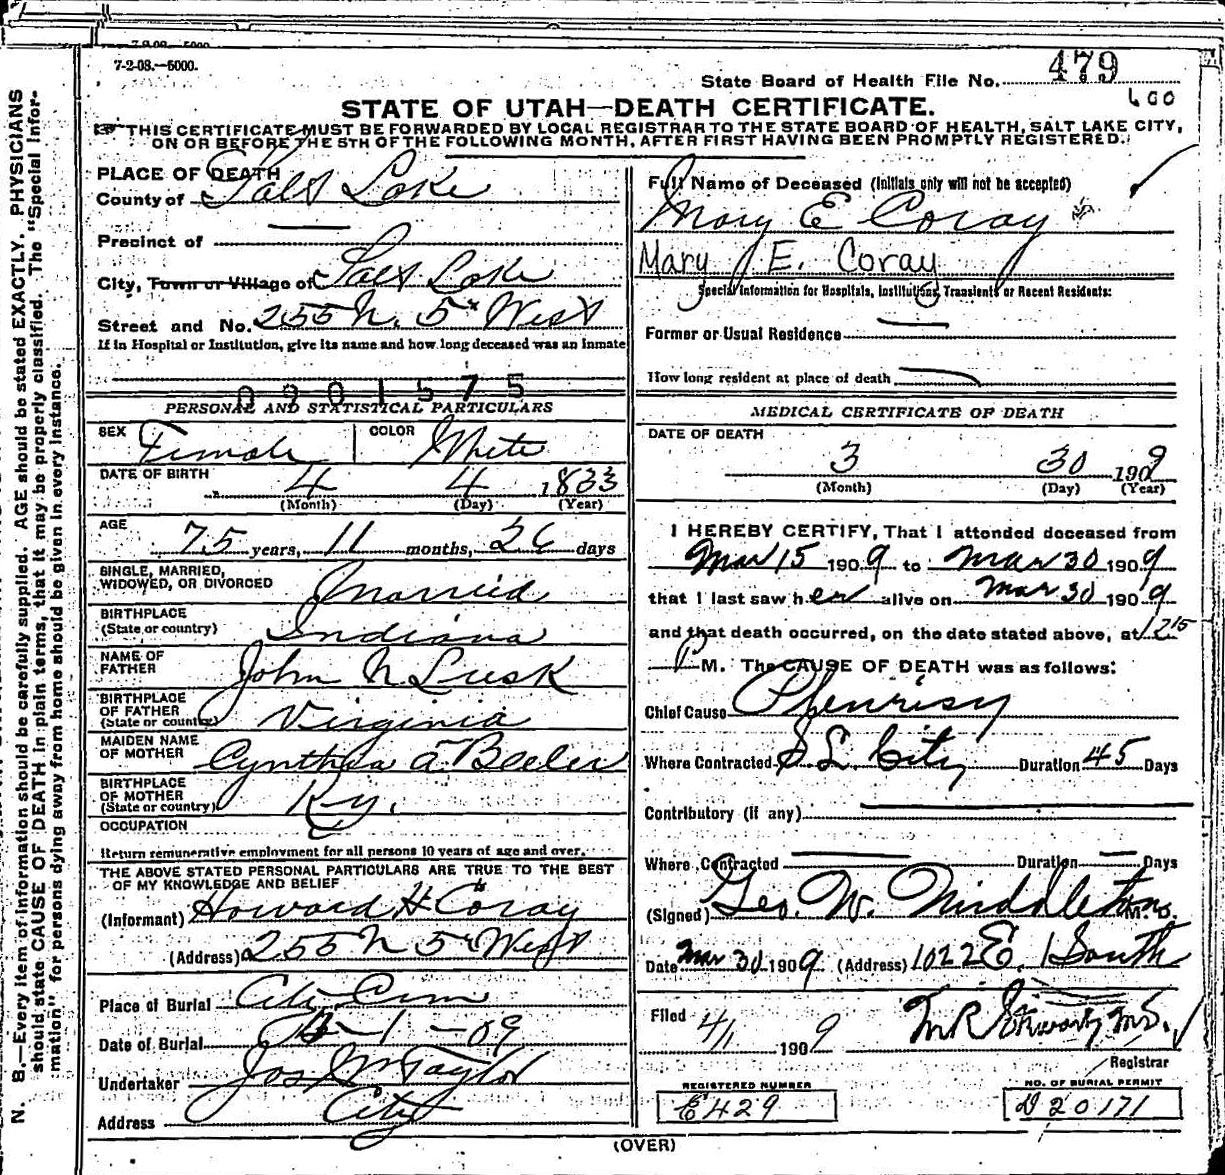 7-2-08.—5000.
State Board of Health File No. 479
600
STATE OF UTAH—DEATH CERTIFICATE.
THIS CERTIFICATE MUST BE FORWARDED BY LOCAL REGISTRAR TO THE STATE BOARD OF HEALTH, SALT LAKE CITY,
ON OR BEFORE THE 5TH OF THE FOLLOWING MONTH, AFTER FIRST HAVING BEEN PROMPTLY REGISTERED.
N. B.—Every item of information should be carefully supplied. AGE should be stated EXACTLY. PHYSICIANS
should state CAUSE OF DEATH in plain terms, that it may be properly classified. The "Special Infor-
mation" for persons dying away from home should be given in every instance.
PLACE OF DEATH
County of Salt Lake
Precinct of
City, Town or Village of Salt Lake
Street and No. 255 N. 5th West
If in Hospital or Institution, give its name and how long deceased was an inmate
0901575
PERSONAL AND STATISTICAL PARTICULARS
SEX Female COLOR White
DATE OF BIRTH 4 4 1833
(Month) (Day) (Year)
AGE
75 years, 11 months, 26 days
SINGLE, MARRIED,
WIDOWED, OR DIVORCED Married
BIRTHPLACE
(State or country) Indiana
NAME OF
FATHER John N Lusk
BIRTHPLACE
OF FATHER
(State or country) Virginia
MAIDEN NAME
OF MOTHER Cynthia A. Beeler
BIRTHPLACE
OF MOTHER
(State or country) Ky.
OCCUPATION
Return remunerative employment for all persons 10 years of age and over.
THE ABOVE STATED PERSONAL PARTICULARS ARE TRUE TO THE BEST
OF MY KNOWLEDGE AND BELIEF
(Informant) Howard H Coray
(Address) 255 N 5th West
Place of Burial City Cem
Date of Burial 1 - 09
Undertaker Jos Wm Taylor
Address City
Full Name of Deceased (Initials only will not be accepted)
Mary E Coray
Mary E. Coray
Special Information for Hospitals, Institutions, Transients or Recent Residents:
Former or Usual Residence
How long resident at place of death
MEDICAL CERTIFICATE OF DEATH
DATE OF DEATH
3 30 1909
(Month) (Day) (Year)
I HEREBY CERTIFY, That I attended deceased from
Mar 15 1909 to Mar 30 1909
that I last saw her alive on Mar 30 1909
and that death occurred, on the date stated above, at 12 15
P M. The CAUSE OF DEATH was as follows:
Chief Cause Pleurisy
Where Contracted S L City Duration 45 Days
Contributory (if any)
Where Contracted Duration Days
(Signed) Geo. W. Middleton M. D.
Date Mar 30 1909 (Address) 1022 E. 1 South
Filed 4/1 1909 M R Stewart M.D.
Registrar
REGISTERED NUMBER
E429
NO. OF BURIAL PERMIT
D 20171
(OVER)